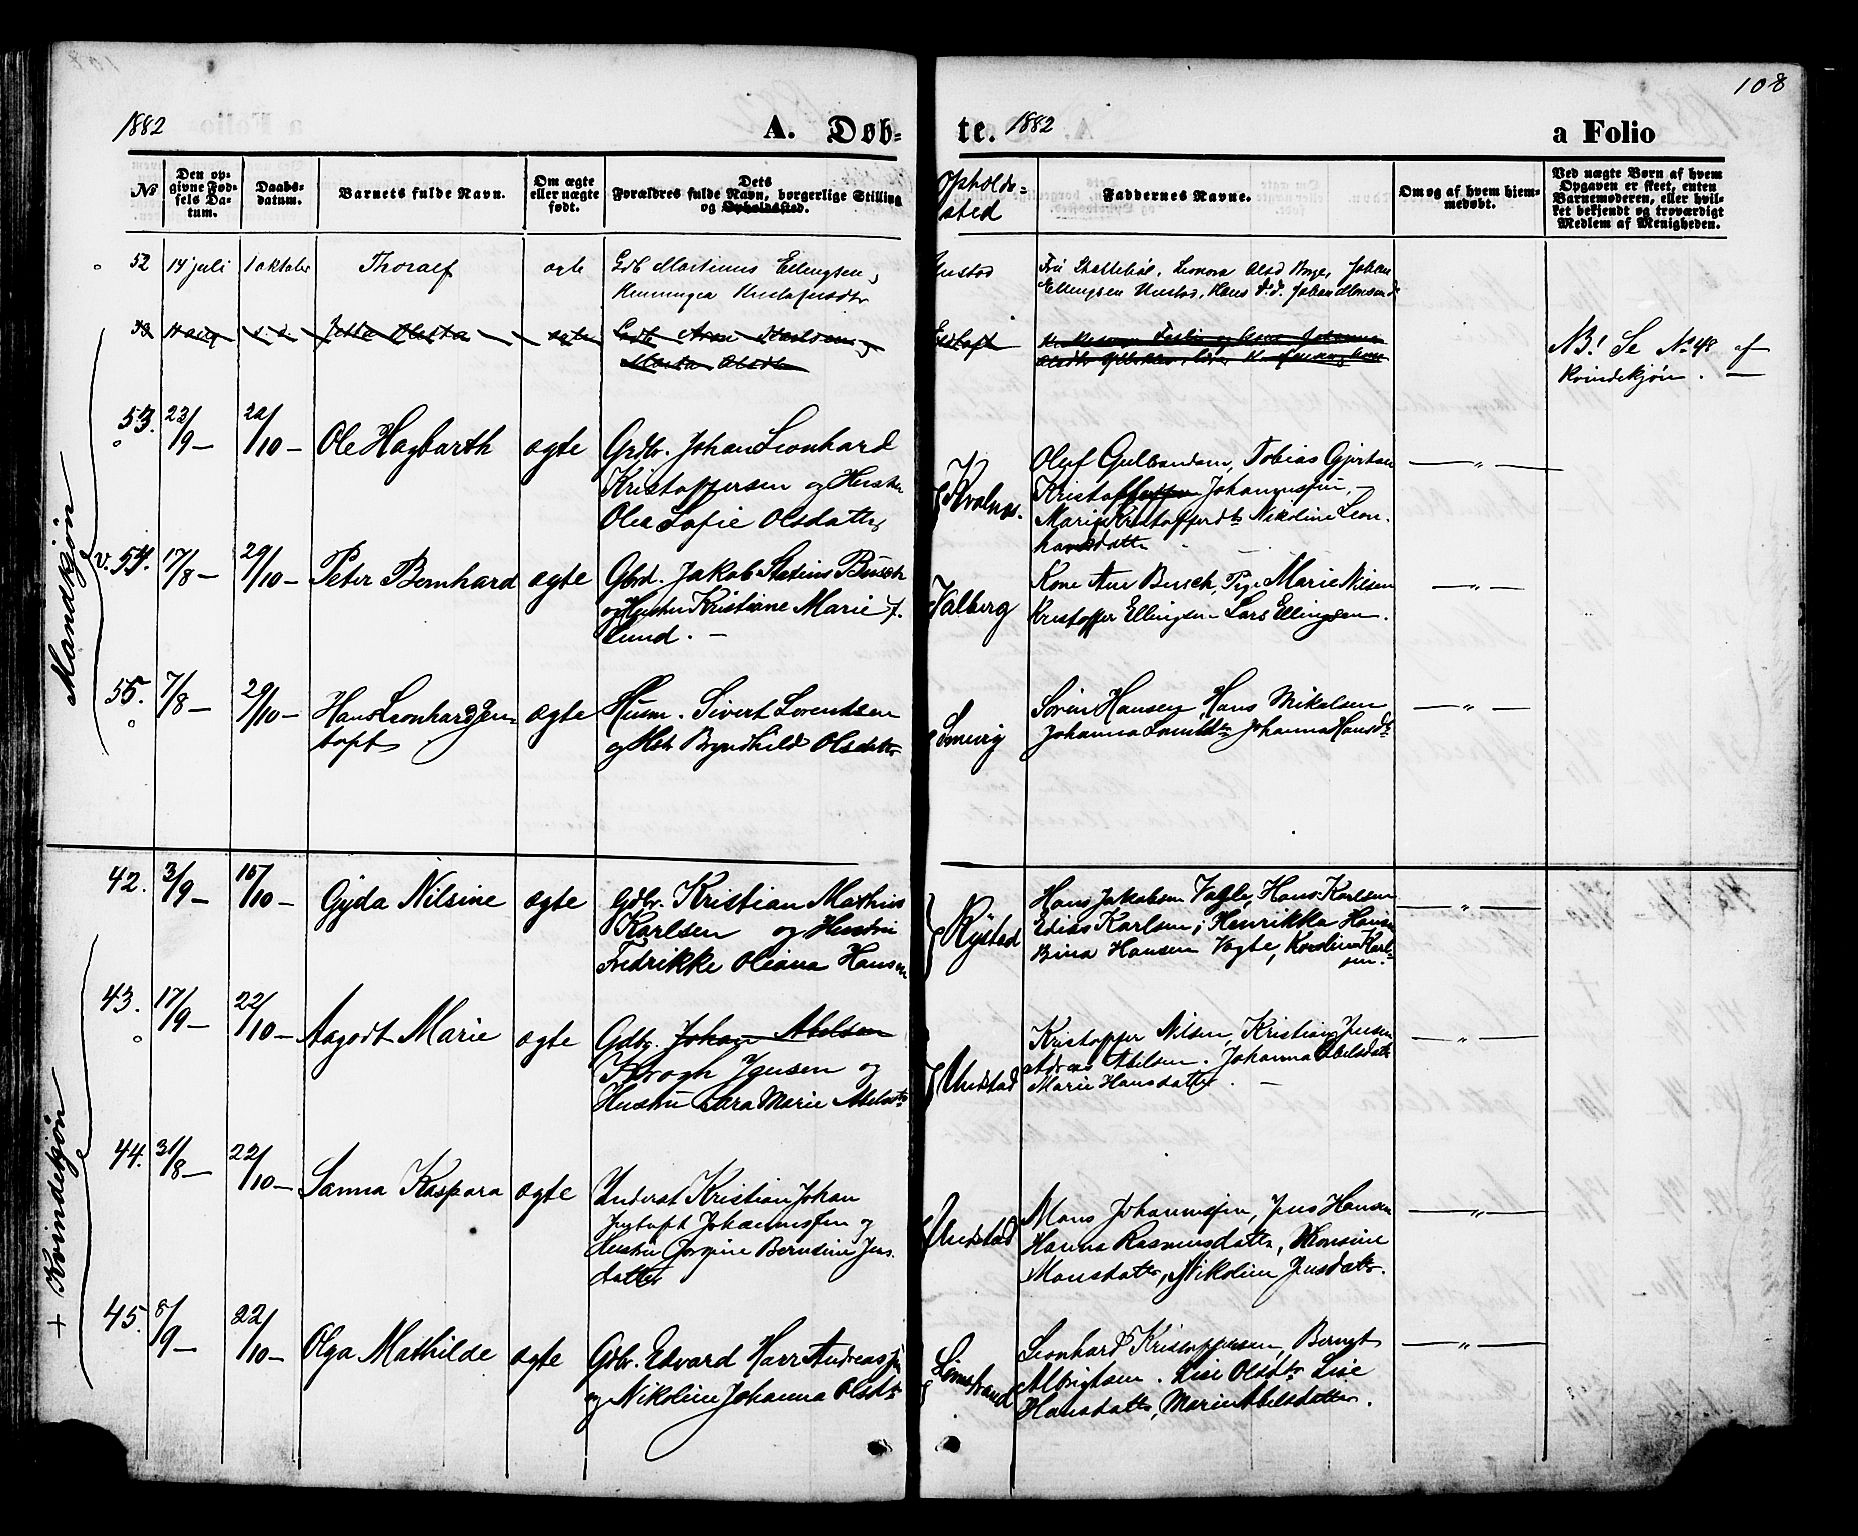 108
1882 A. Døb- te. 1882 a Folio
No
Den op-
givne Fød-
sels Da-
tum.
Daabs-
datum.
Barnets fulde Navn.
Om ægte
eller uægte
født.
Dets
Forældres fulde Navn, borgerlige Stilling
og Opholdssted.
Opholds-
sted
Faddernes Navne.
Om og af hvem hjem-
medøbt.
Ved uægte Børn af hvem
Opgaven er skeet, enten
Barnemoderen, eller hvil-
ket bekjendt og troværdigt
Medlem af Menigheden.
Mandkjøn
52 14 juli 1 oktober Thoralf ægte Gdb Martinus Ellingsen,
Unstad
Johan
Ellingsen Unstad, Hans
NB! Se No 48 af
kvindekjøn. —
53. 23/9 — 22/10 — Ole Hagbarth ægte Grdbr. Johan Leonhard
Kristoffersen og Hustru
Olea Sofie Olsdatter
Kvalnes.
Oluf Gulbrandsen, Tobias Gjertsen
Johannessen, —
Marie Kristofferdtr Nikoline Leon-
hardsdatter
— " —
v. 54. 17/8 — 29/10 — Peter Bernhard ægte Gbrd. Jakob Statius Busch
og Hustru Kristiane Marie f.
Lund. —
Valberg
Kone Ane Busch, Pige Marie Nilsen
Kristoffer Ellingsen Lars Ellingsen.
— " —
55. 7/8 — 29/10 — Hans Leonhard Jen-
toft
ægte Husm. Sivert Lorentsen
og Hstr Bryndhild Olsdatter
Søren Hansen, Hans Mikalsen,
Johanna Johanna Hansdtr
— " —
+ Kvindekjøn
42. 3/9 — 15/10 — Gyda Nilsine ægte Gdbr. Kristian Mathias
Karlsen og Hustru
Fredrikke Oleana Hansen
Rystad
Hans Jakobsen Vagle, Hans Karlsen
Edias Karlsen; Henrikka Hansen
Bina Hansen Vagle, Karolina Karl-
sen.
— " —
43. 17/9 — 22/10 — Aagodt Marie ægte Gdbr. Johan Abelsen
Krogh Jensen og
Hustru Sara Marie Abelsdtr
Unstad
Kristoffer Nilsen, Kristian Jensen
Andreas Abelsen. Johanna Abelsdatter
Marie Hansdatter. —
— " —
44. 31/8 — 22/10 — Sanna Kaspara ægte Inderst Kristian Johan
Jentoft Johannessen og
Hustru Jørgine Berntine Jens-
datter
Unstad
Mons Johannessen, Jens Hansen
Hanna Rasmusdatter, Monsine
Monsdatter, Nikoline Jensdatter.
— " —
45. 8/9 — 22/10 — Olga Mathilde ægte Gdbr. Edvard Harr Andreassen
og Nikoline Johanna Olsdtr
Limstrand
Leonhard Kristoffersen, Berngt
Albrigtsen. Lise Olsdtr Lise
Hansdatter, Marie Abelsdatter.
— " —